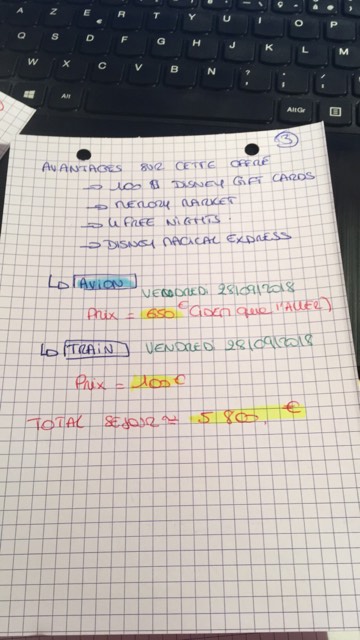 A Z E R T Y U I O P
€
Q S D F G H J K L M
W X C V B N ? . / §
, ; : !
Alt AltGr
3
AVANTAGES SUR CETTE OFFRE
→ 100 $ DISNEY GIFT CARDS
→ MEMORY MARKET
→ 4 FREE NIGHTS.
→ DISNEY MAGICAL EXPRESS
↳ AVION VENDREDI 28/09/2018
Prix = 650 € (rien que l'ALLER)
↳ TRAIN VENDREDI 28/09/2018
Prix = 100 €
TOTAL SEJOUR ≈ 5 800. €